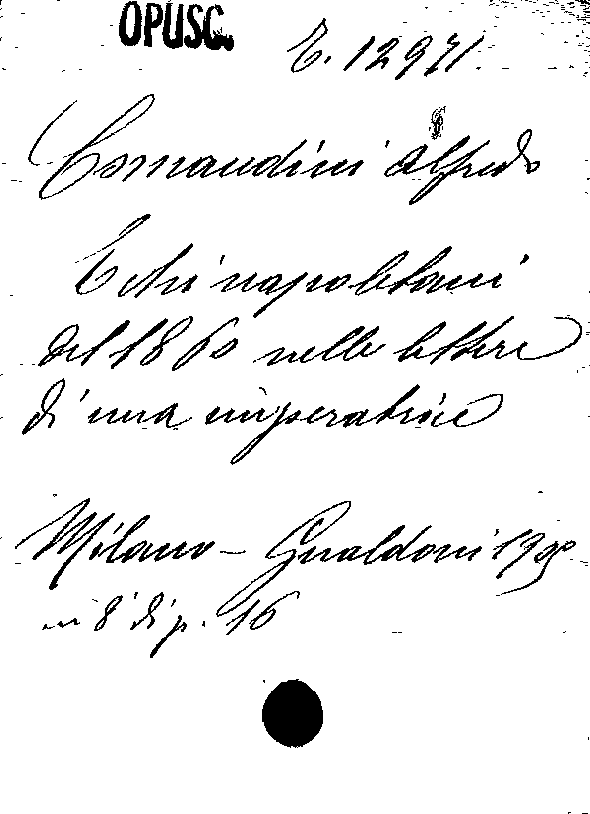 OPUSC.
E. 12971.
Comandini Alfredo
Echi napoletani
del 1860 nelle lettere
di una imperatrice
Milano - Gualdoni
in 8° di p. 16